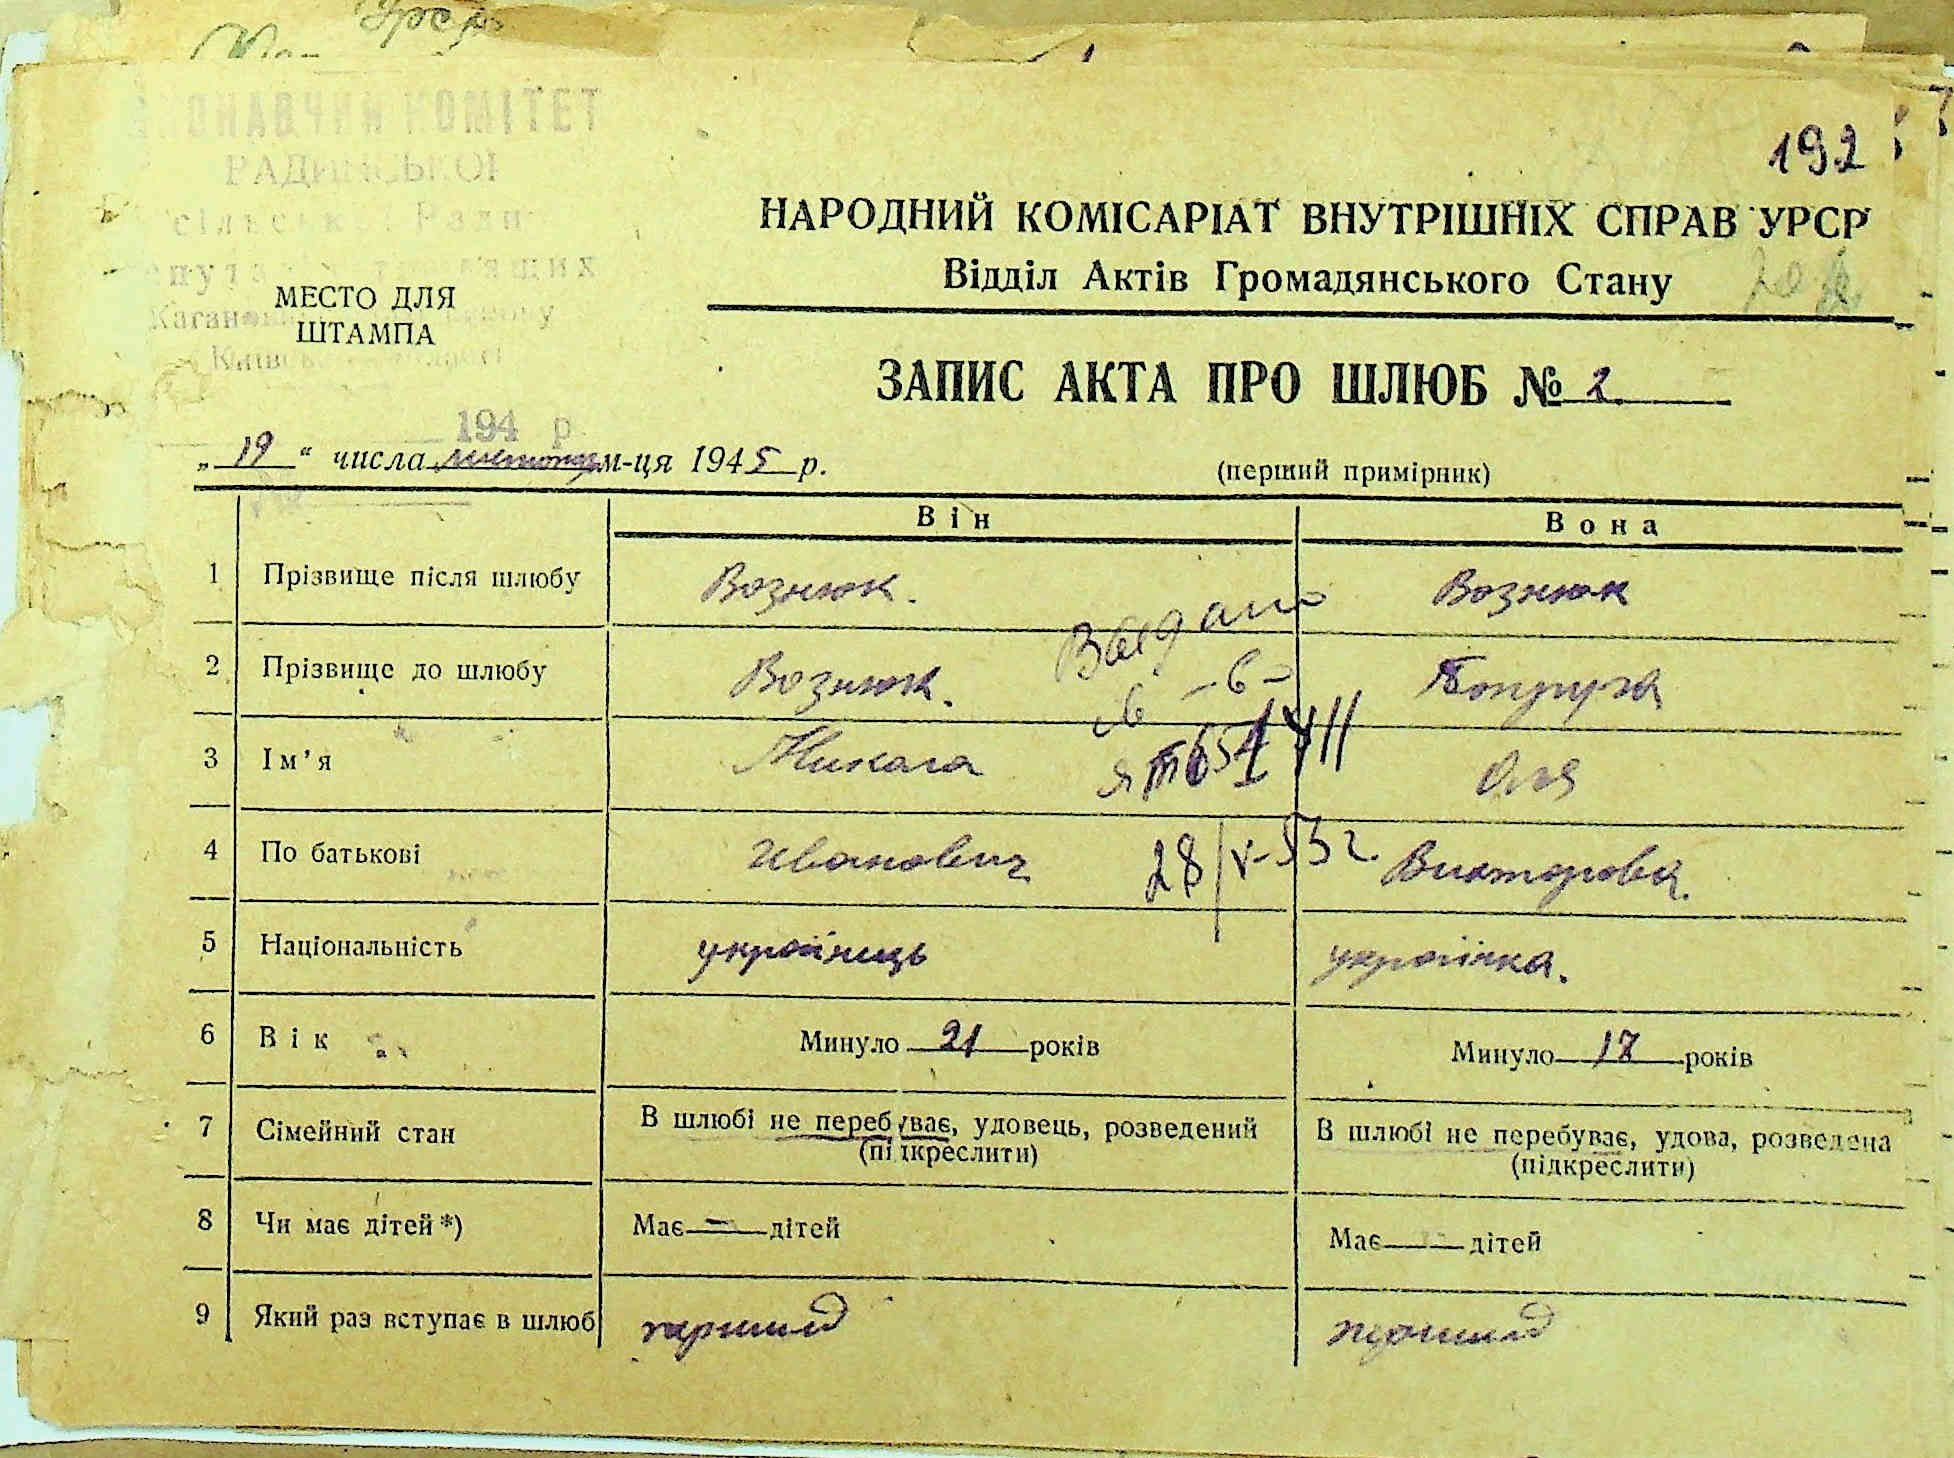 192
КОМІТЕТ
НАРОДНИЙ КОМІСАРІАТ ВНУТРІШНІХ СПРАВ УРСР
Відділ Актів Громадянського Стану
МЕСТО ДЛЯ
ШТАМПА
ЗАПИС АКТА ПРО ШЛЮБ № 2.
194 р.
„ 19 “ числа м-ця 1945 р.
(перший примірник)
Він Вона
1 Прізвище після шлюбу Вознюк. Вознюк
Выдано
2 Прізвище до шлюбу Вознюк.
3 Ім'я Микола Оля
28/V-53 г.
4 По батькові Иванович Викторовa.
5 Національність українець українка.
6 Вік Минуло 21 років Минуло 17 років
7 Сімейний стан В шлюбі не перебуває, удовець, розведений В шлюбі не перебуває, удова, розведена
(підкреслити) (підкреслити)
8 Чи має дітей*) Має — дітей Має дітей
9 Який раз вступає в шлюб перший перший